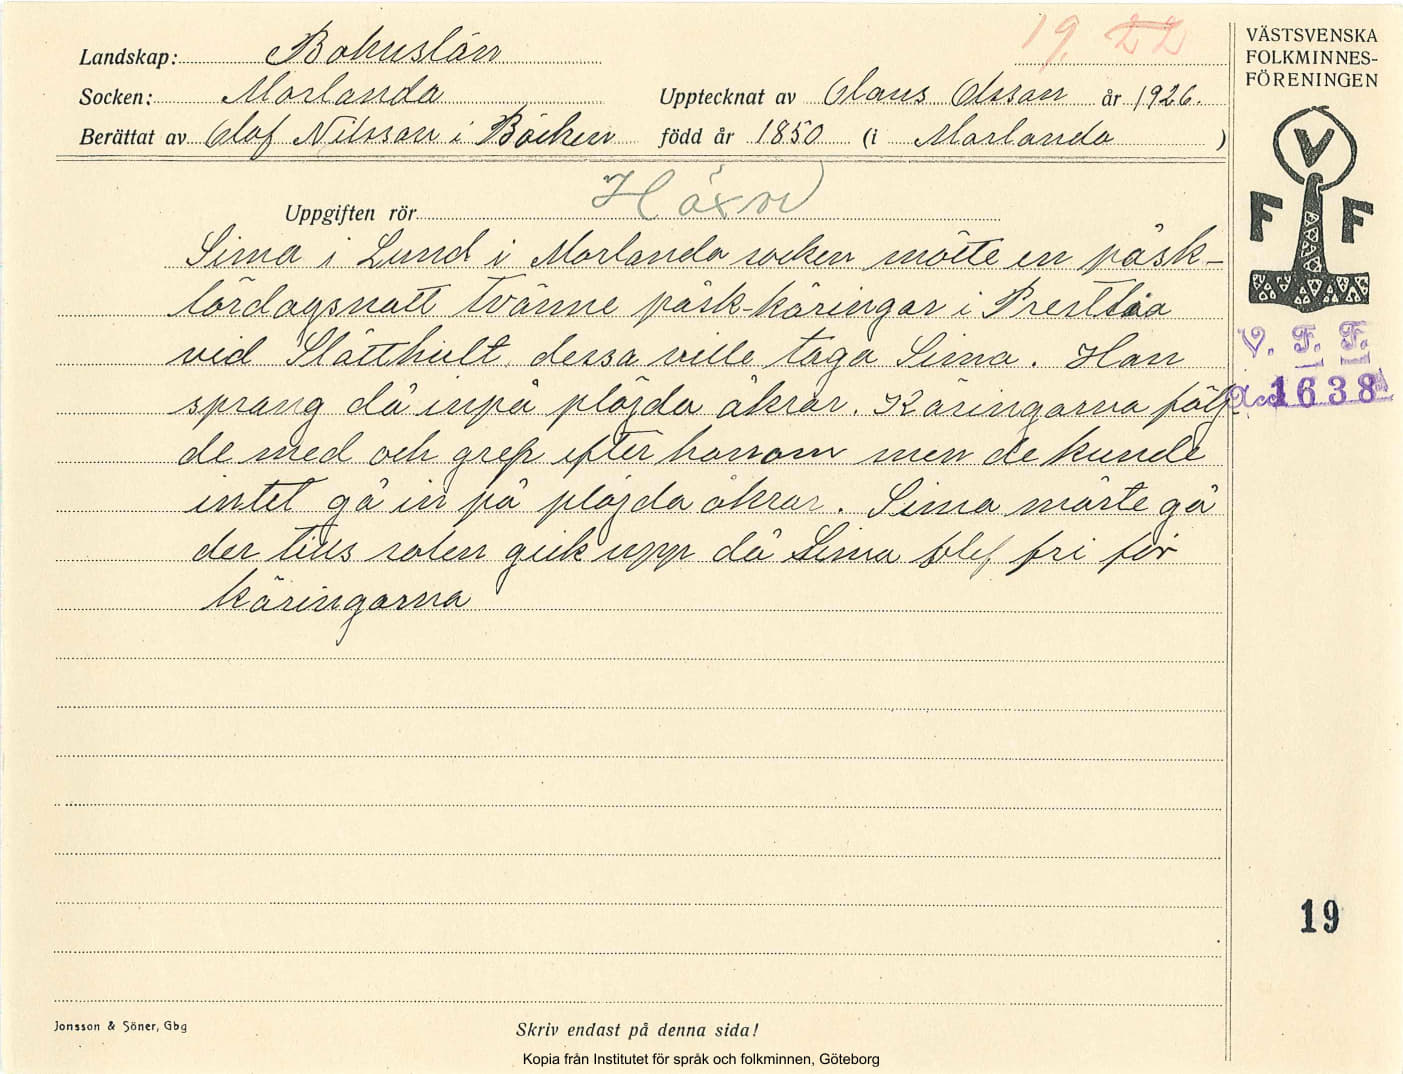 19. 22
VÄSTSVENSKA
FOLKMINNES-
FÖRENINGEN
V
F F
V. F. F.
Acc 1638
Landskap: Bohuslän
Socken: Morlanda Upptecknat av Olaus Olsson år 1926.
Berättat av Olof Nilsson i Bäcken född år 1850 (i Morlanda )
Uppgiften rör Häxor
Sima i Lund i Morlanda socken mötte en påsk-
lördagsnatt tvänne påsk-käringar i
vid Slätthult. dessa ville taga Sima. Han
sprang då inpå plöjda åkrar. Käringarna följ-
de med och grep efter honom men de kunde
intet gå in på plöjda åkrar. Sima måste gå
der tills solen gick upp då Sima blef fri för
käringarna
19
Jonsson & Söner, Gbg
Skriv endast på denna sida!
Kopia från Institutet för språk och folkminnen, Göteborg